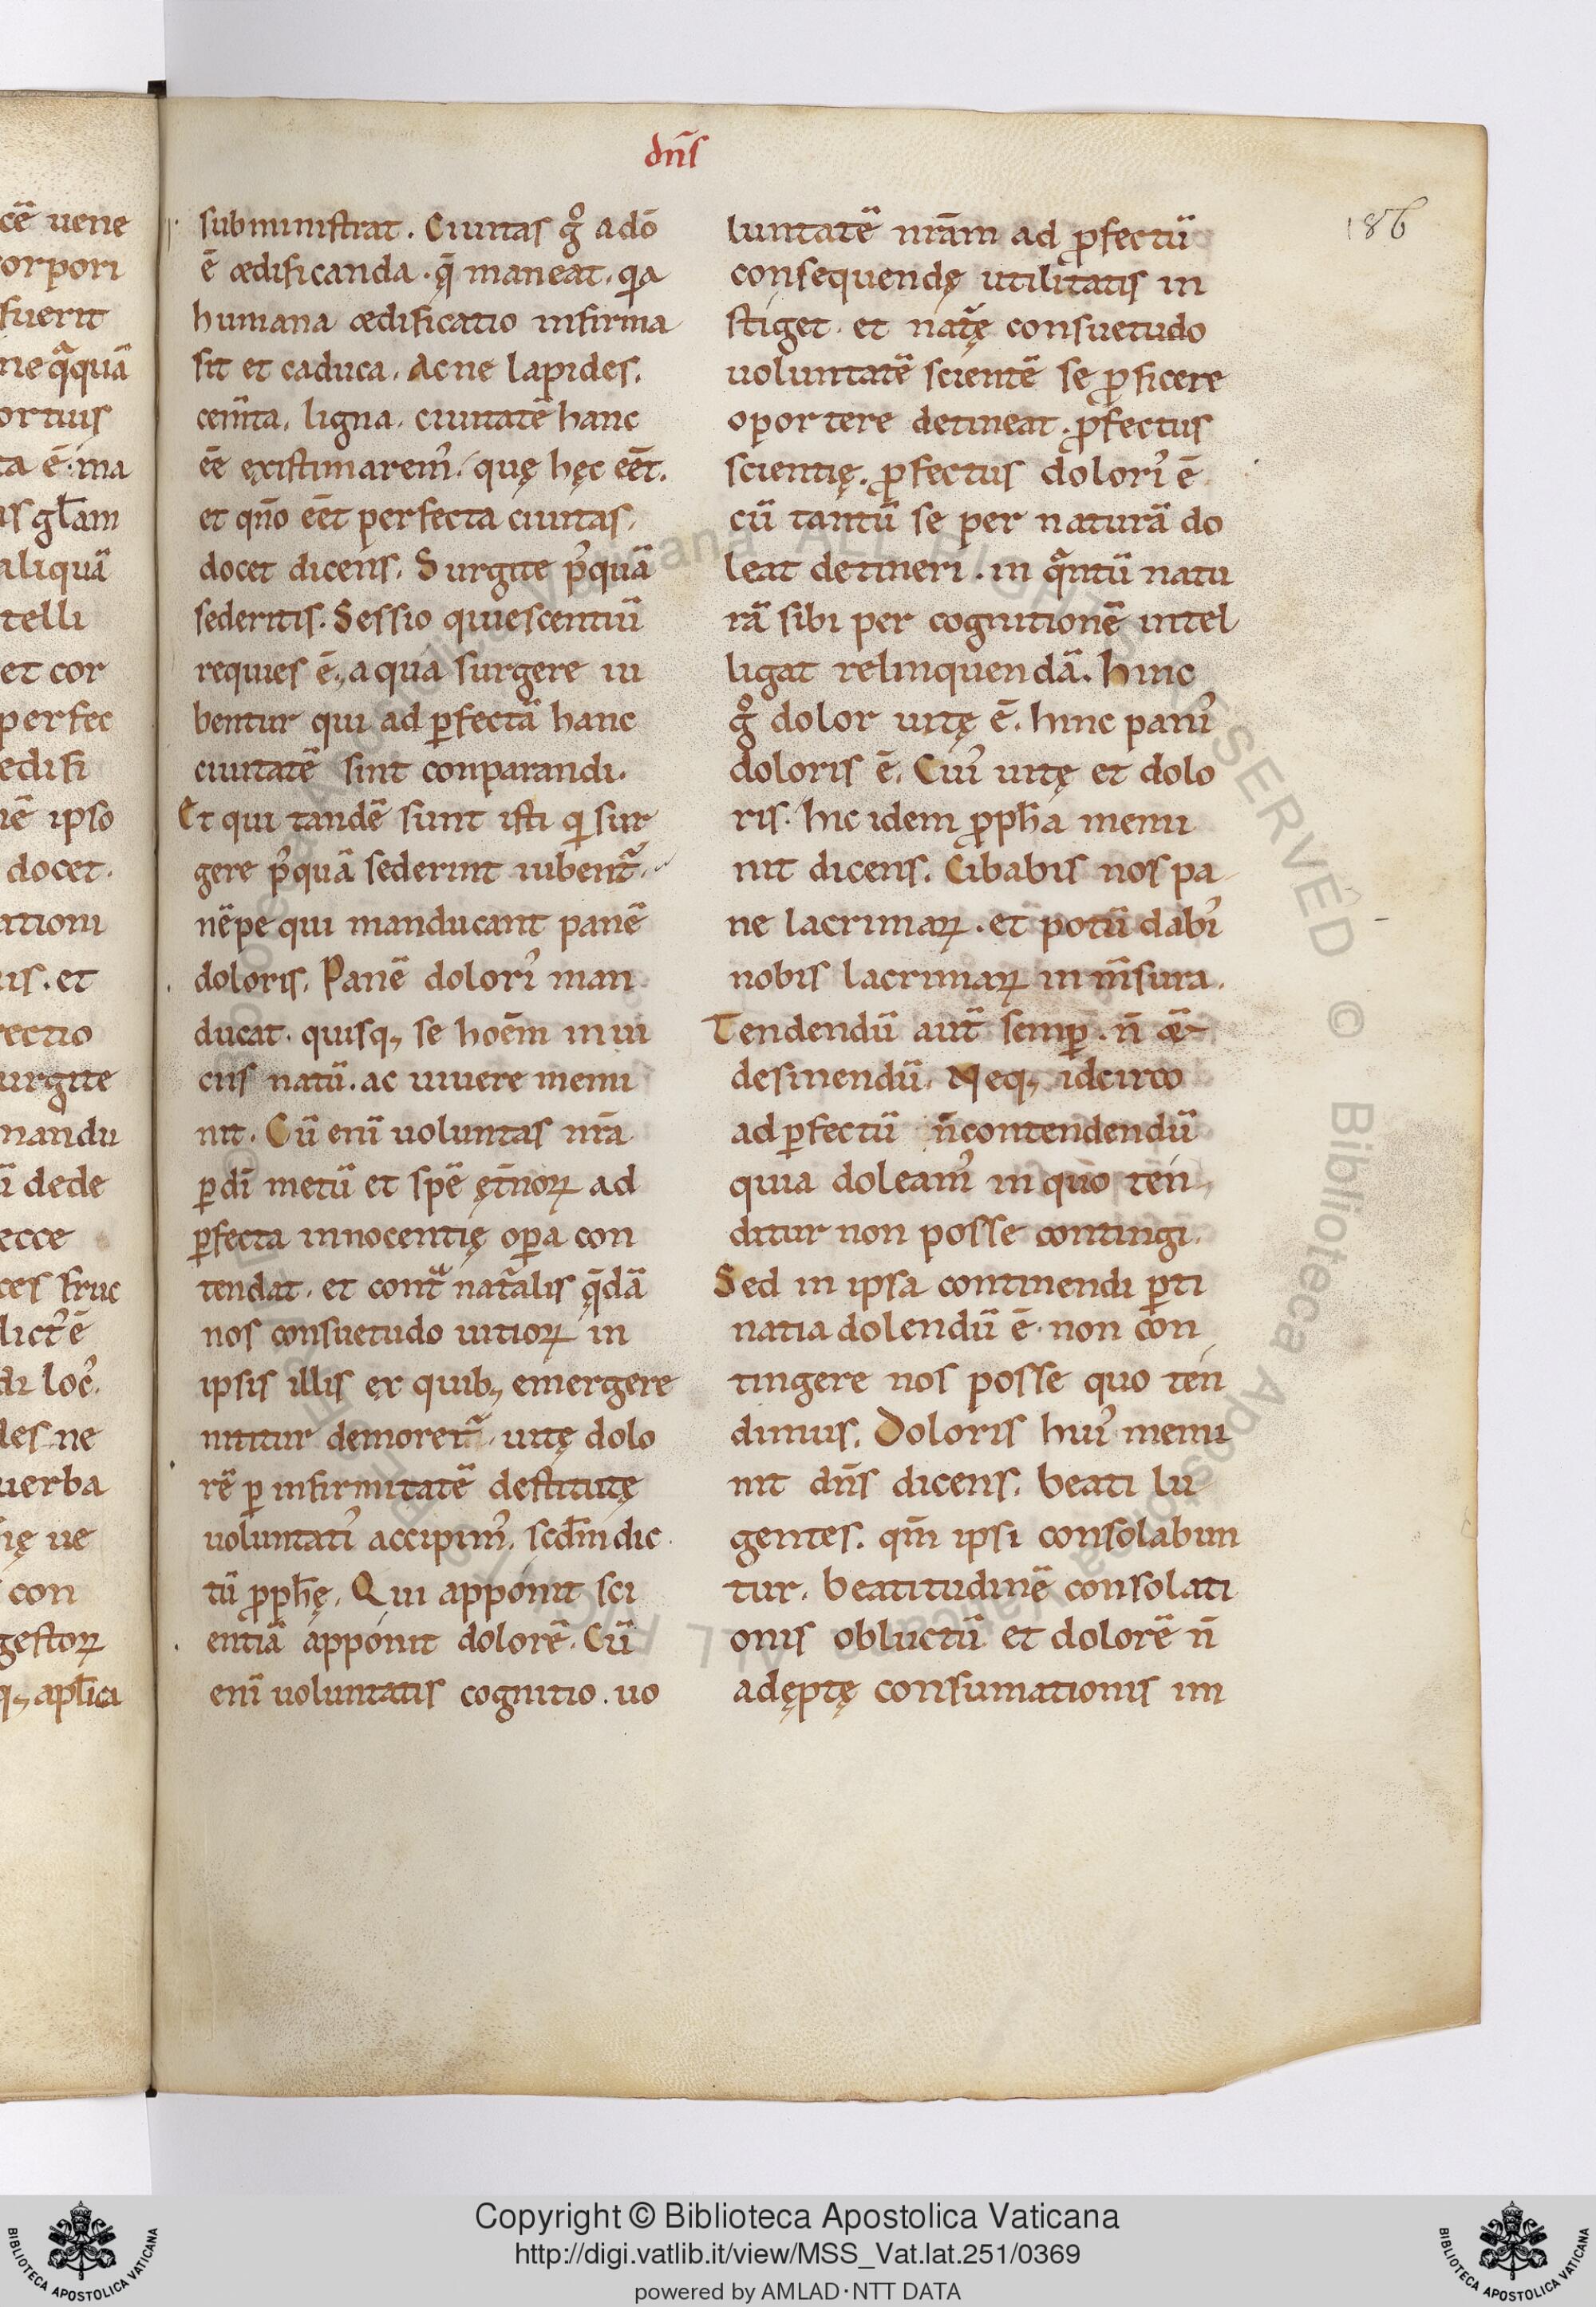 dn̄s
186
subministrat. Ciuitas g̊ a dō
ē ædificanda. q̨̄ maneat. qa
humana ædificatio infirma
sit et caduca. Ac ne lapides.
cem̄ta. ligna. ciuitatē hanc
ēe existimarem᾽. quę hęc eēt.
et qn̄o eēt perfecta ciuitas.
docet dicens. Surgite p᾽quā
sederitis. Sessio quiescentiū
requies ē, a qua surgere iu
bentur qui ad ꝑfectā hanc
ciuitatē sint conparandi.
Et qui tandē sunt isti qi sur
gere p᾽quā sederint iubent᷑.
nēpe qui manducant panē
doloris. Panē dolori᾽ man
ducat. quisq, se hoēm in ui
ciis natū. ac uiuere memi
nit. Cū enī uoluntas nr̄a
ꝑ dī metū et spē ęt̄noꝝ ad
ꝑfecta innocentię oꝑa con
tendat. et contᷓ natᷓalis q̨̄dā
nos consuetudo uitioꝝ in
ipsis illis ex quib, emergere
nititur demoret᷑. uitę dolo
rē ꝑ infirmitatē destitutę
uoluntati᾽ accipim᾽. scd̄m dic
tū ꝓph̄ę. Qui apponit sci
entiā apponit dolorē. Cū
enī uoluntatis cognitio. uo
luntatē nr̄am ad ꝓfectū
consequendę utilitatis in
stiget. et natᷓę consuetudo
uoluntatē scientē se ꝓficere
oportere detineat. ꝓfectus
scientię. ꝓfectus dolori᾽ ē
cū tantū se per naturā do
leat detineri. in qᷓntū natu
rā sibi per cognitionē intel
ligat relinquendā. hinc
g̊ dolor uitę ē. hinc pani᾽
doloris ē. Cui᾽ uitę et dolo
ris. hic idem ꝓph̄a memi
nit dicens. Cibabis nos pa
ne lacrimaꝝ. et potū dabi᾽
nobis lacrimaꝝ in m̄sura.
Tendendū aut̄ semꝑ. n̄ ǣ
desinendū. Neq, idcirco
ad ꝑfectū n̄ contendendū
quia doleam᾽ in quo ten
ditur non posse contingi.
Sed in ipsa continendi ꝑti
natia dolendū ē. non con
tingere nos posse quo ten
dimus. Doloris hui᾽ memi
nit dn̄s dicens. beati lu
gentes. qm̄ ipsi consolabun
tur. beatitudinē consolati
onis obluctū et dolorē n̄
adęptę consumationis im
Copyright © Biblioteca Apostolica Vaticana
http://digi.vatlib.it/view/MSS_Vat.lat.251/0369
powered by AMLAD·NTT DATA